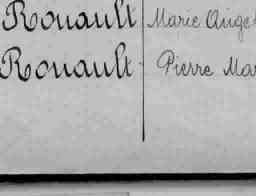 Rouault Marie Ange
Rouault Pierre Mar